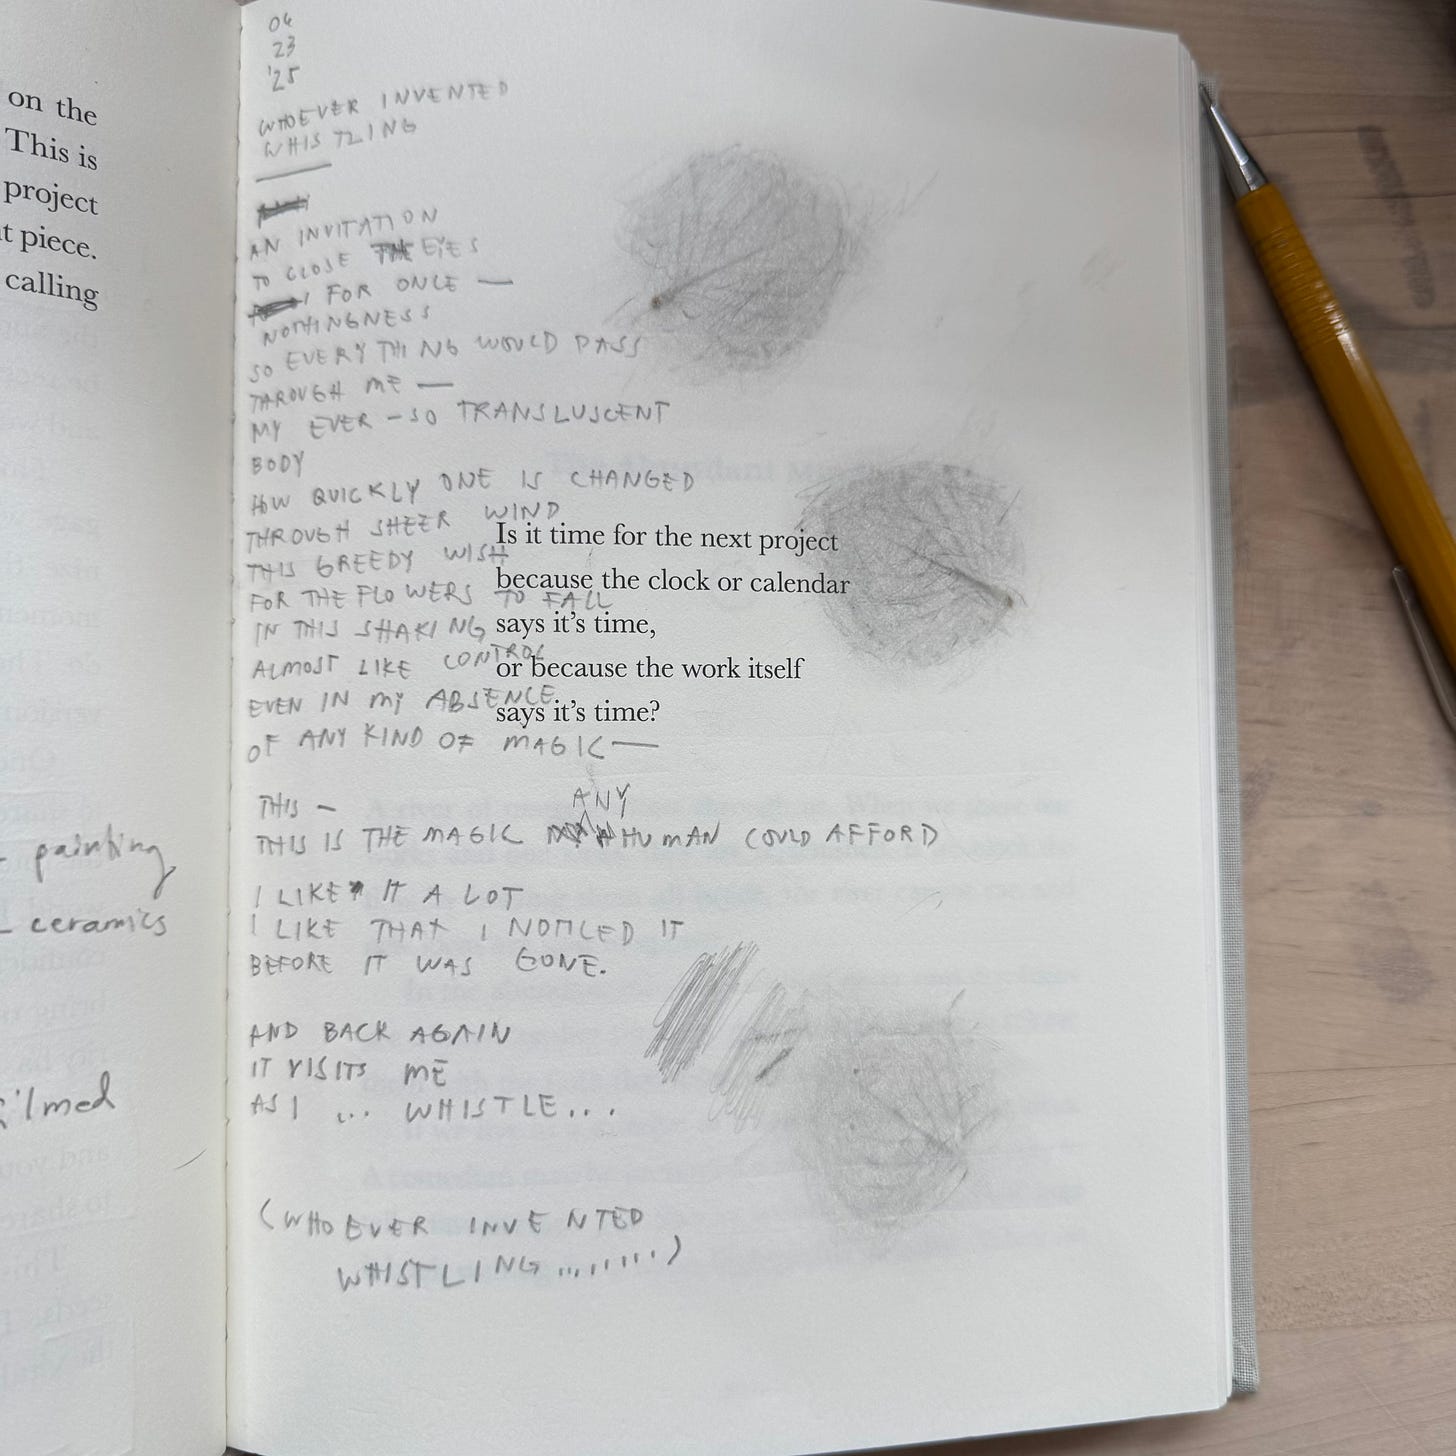 on the
This is
project
t piece.
calling
painting,
ceramics
04
23
'25
WHOEVER INVENTED
WHISTLING
AN INVITATION
TO CLOSE EYES
FOR ONCE —
NOTHINGNESS
SO EVERYTHING WOULD PASS
THROUGH ME —
MY EVER-SO TRANSLUSCENT
BODY
HOW QUICKLY ONE IS CHANGED
THROUGH SHEER WIND
THIS GREEDY WISH
FOR THE FLOWERS TO FALL
IN THIS SHAKING
ALMOST LIKE CONTROL
EVEN IN MY ABSENCE
OF ANY KIND OF MAGIC —
THIS —
THIS IS THE MAGIC ANY HUMAN COULD AFFORD
I LIKE IT A LOT
I LIKE THAT I NOTICED IT
BEFORE IT WAS GONE.
AND BACK AGAIN
IT VISITS ME
AS I ... WHISTLE...
(WHOEVER INVENTED
WHISTLING .........)
Is it time for the next project
because the clock or calendar
says it's time,
or because the work itself
says it's time?